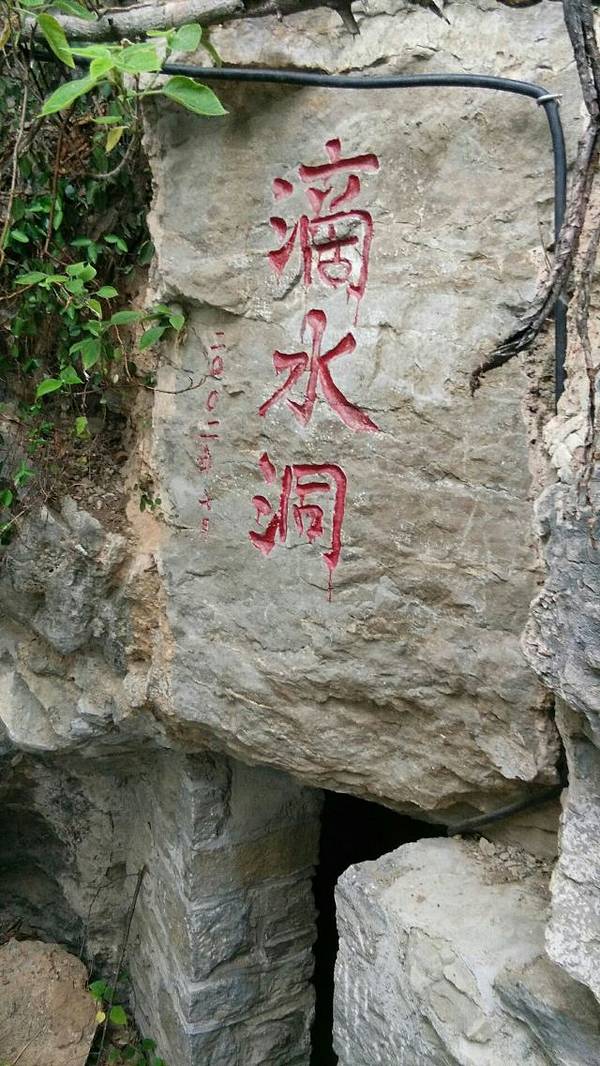 滴水洞
二〇〇二年七月